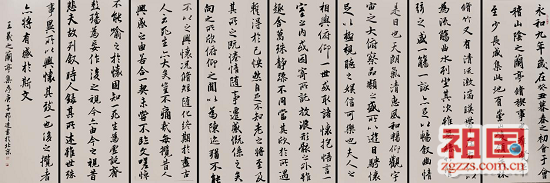 永和九年歲在癸丑暮春之初會于會
稽山陰之蘭亭脩稧事也群賢畢
至少長咸集此地有崇山峻領茂林
脩竹又有清流激湍暎帶左右引以
為流觴曲水列坐其次雖無絲竹管
弦之盛一觴一詠亦足以暢敘幽情
是日也天朗氣清惠風和暢仰觀宇
宙之大俯察品類之盛所以遊目騁懷
足以極視聽之娛信可樂也夫人之
相與俯仰一世或取諸懷抱悟言一
室之內或因寄所託放浪形骸之外雖
趣舍萬殊靜躁不同當其欣於所遇
暫得於己快然自足不知老之將至及
其所之既惓情隨事遷感慨係之矣
向之所欣俯仰之間以為陳迹猶不能
不以之興懷況脩短隨化終期於盡古
人云死生亦大矣豈不痛哉每攬昔人
興感之由若合一契未嘗不臨文嗟悼
不能喻之於懷固知一死生為虛誕齊
彭殤為妄作後之視今亦由今之視昔
悲夫故列敘時人錄其所述雖世殊
事異所以興懷其致一也後之攬者
亦將有感於斯文
王羲之蘭亭集序庚子書於北京
祖国